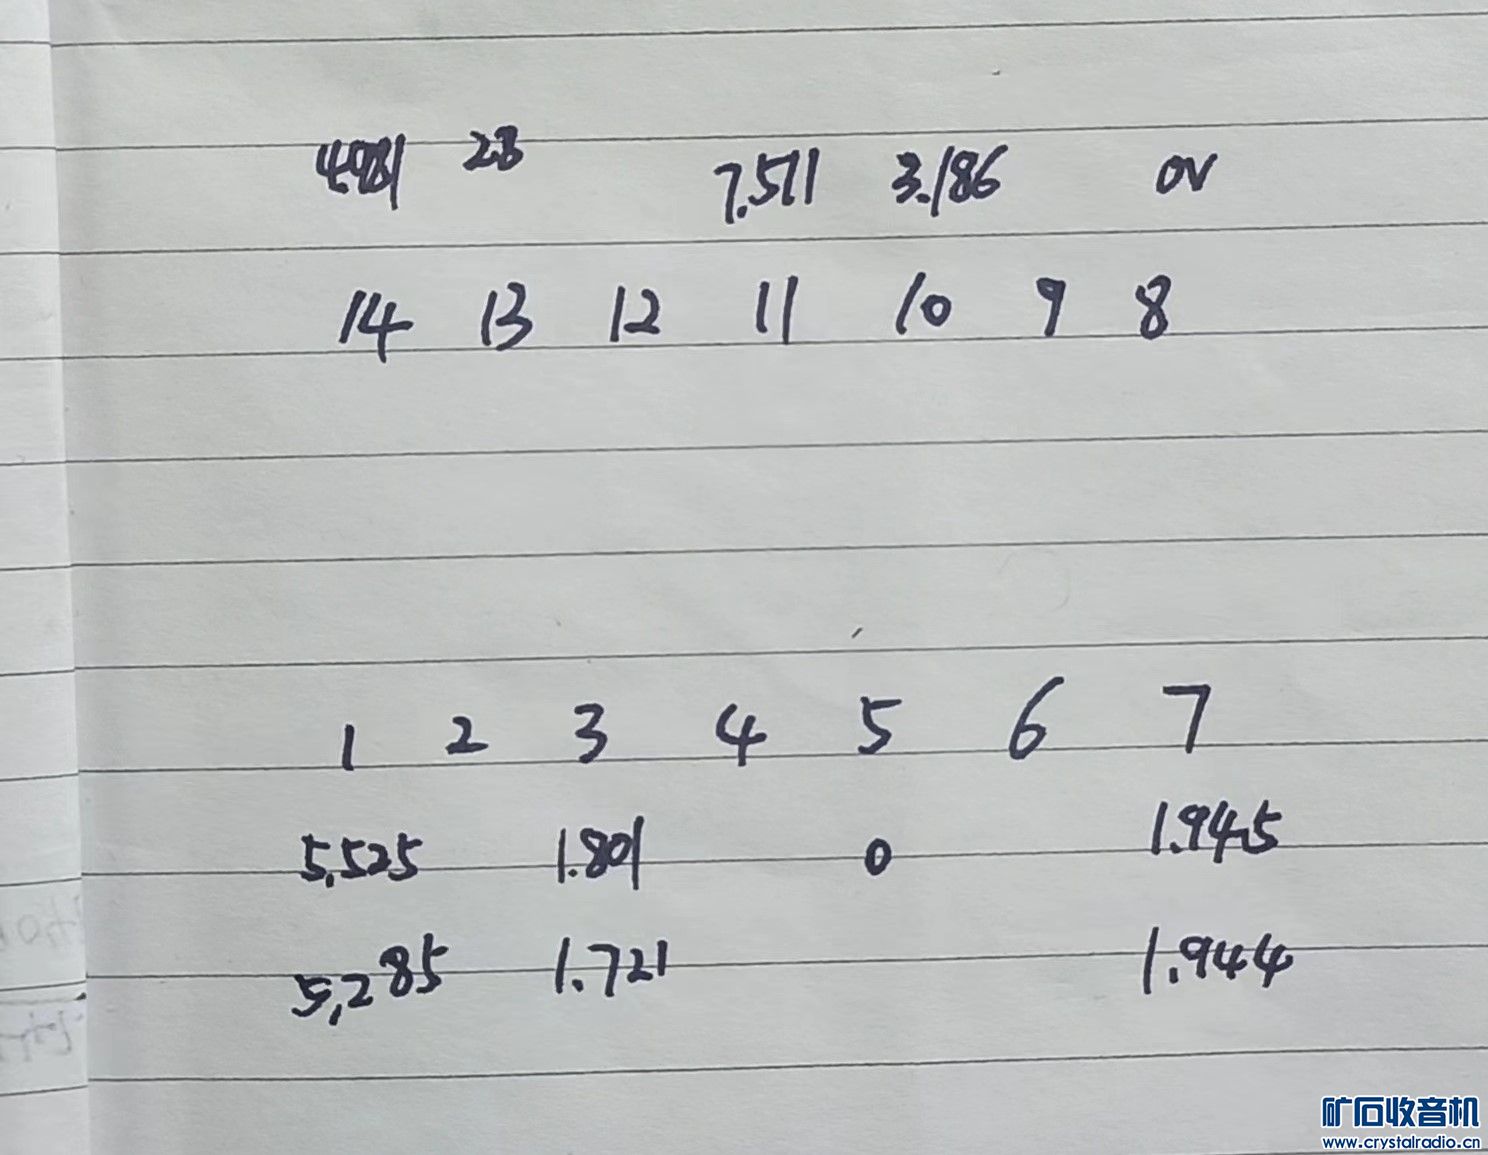 7.511 3.186 0V
14 13 12 11 10 9 8
1 2 3 4 5 6 7
5.525 1.801 0 1.945
5.285 1.721 1.944
矿石收音机
www.crystalradio.cn